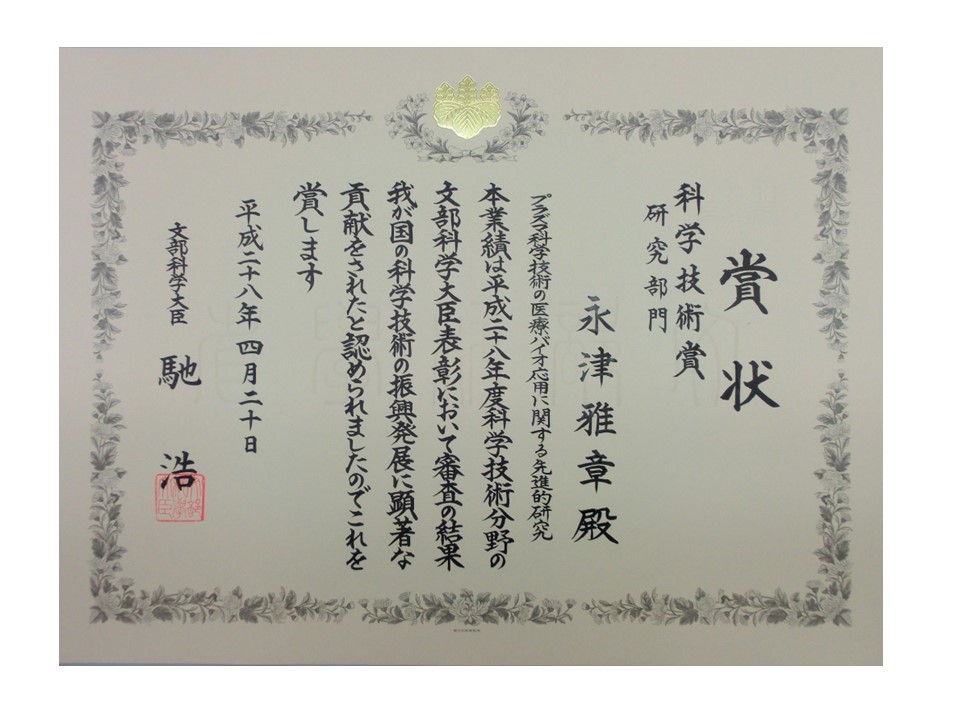 賞状
科学技術賞
研究部門
永津雅章殿
プラズマ科学技術の医療・バイオ応用に関する先進的研究
本業績は平成二十八年度科学技術分野の
文部科学大臣表彰において審査の結果
我が国の科学技術の振興発展に顕著な
貢献をされたと認められましたのでこれを
賞します
平成二十八年四月二十日
文部科学大臣
馳浩